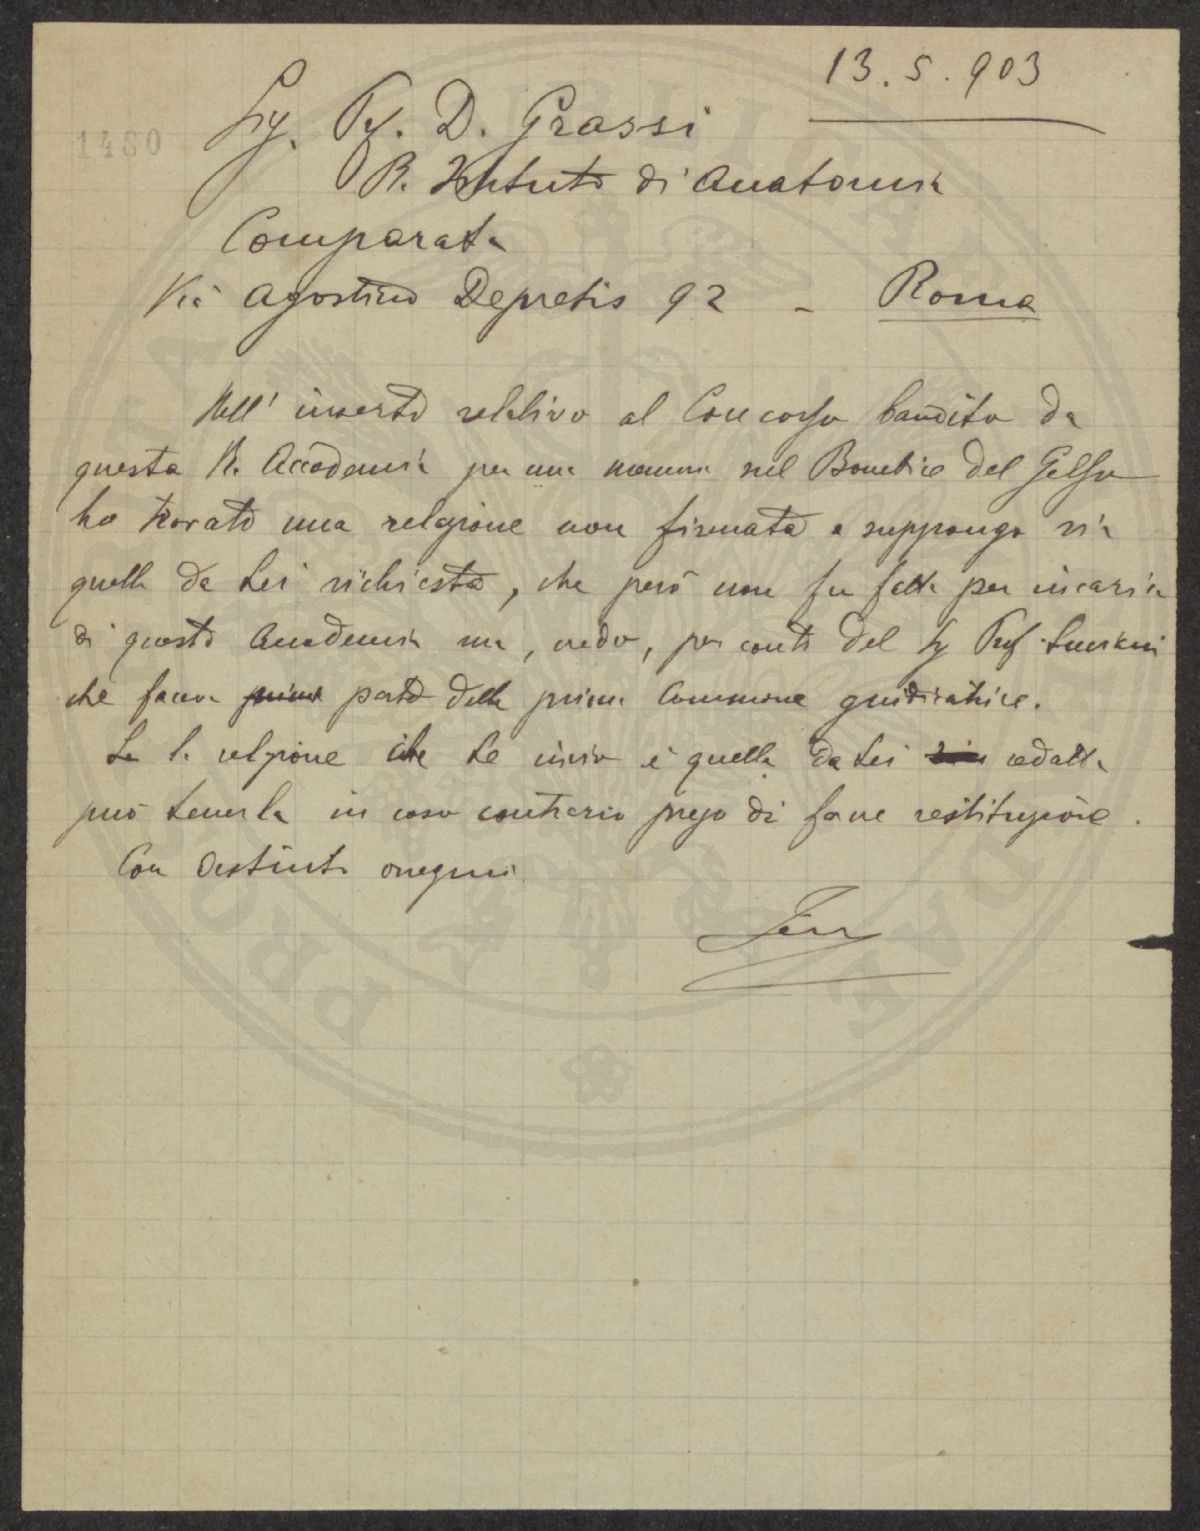 13.5.903
1480
Sig. Pf. D. Grassi
R. Istituto di Anatomia
Comparata
Via Agostino Depretis 92 - Roma
Nell' inserto relativo al Concorso bandito da
questa R. Accademia per una memoria sul Bombice del Gelso
ho trovato una relazione non firmata e suppongo sia
quella da Lei richiesta, che però non fu fatta per incarico
di questa Accademia ma, credo, per conto del Sig Prof. Luciani
che faceva prima parte della prima Commissione giudicatrice.
Se la relazione che Le invio è quella da Lei redatta
può tenerla in caso contrario prego di farne restituzione.
Con distinti ossequi